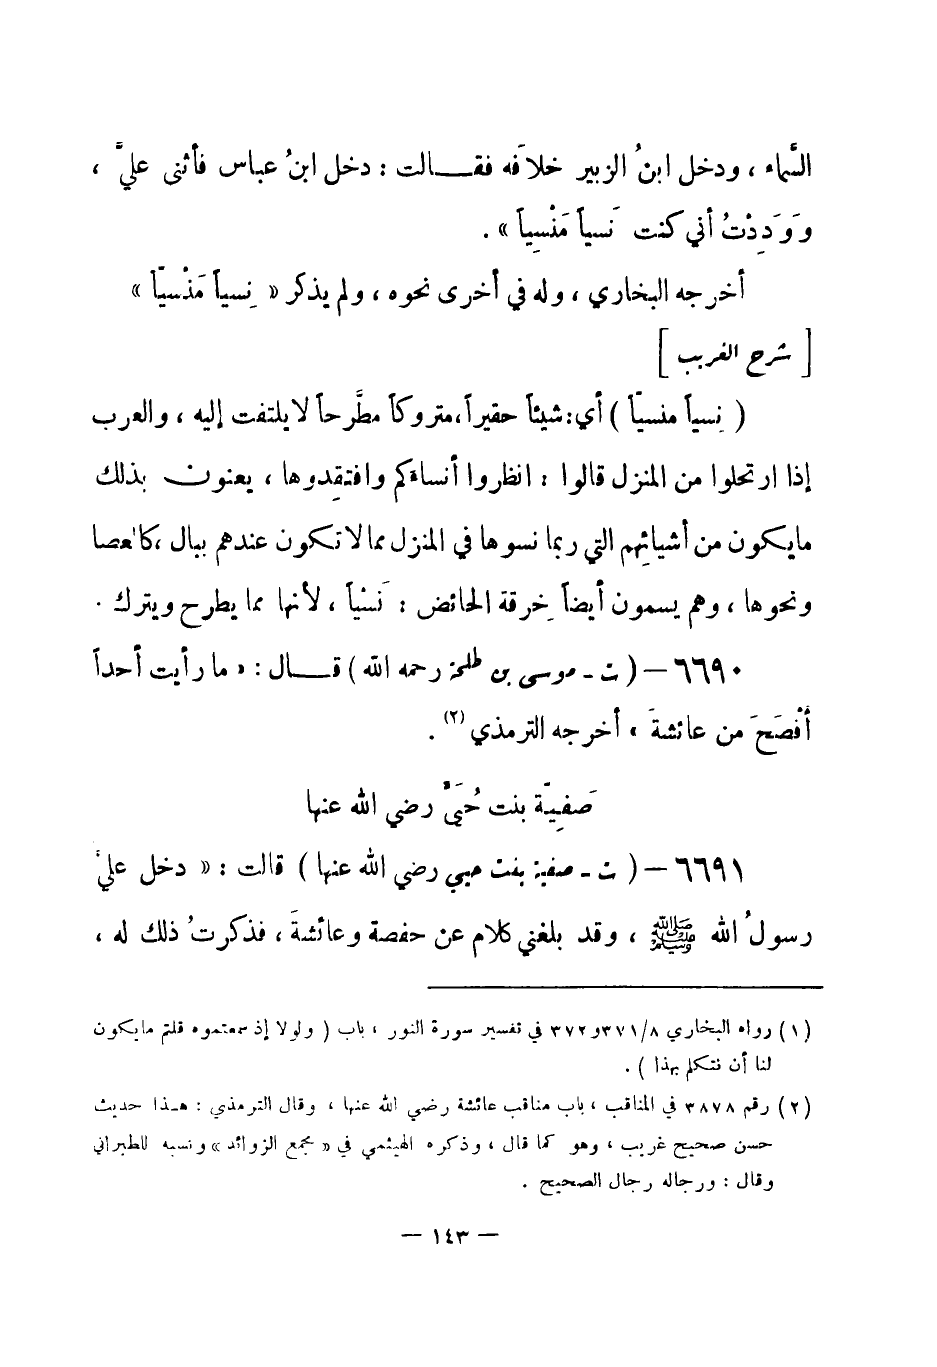 السَّماء ، ودخل ابنُ الزبير خلافَه فقـــالت : دخل ابنُ عباس فأثنى عليَّ ،
وَوَدِدْتُ أني كنت نَسياً مَنْسِياً » .
أخرجه البخاري ، وله في أخرى نحوه ، ولم يذكر « نِسياً مَنْسيّاً »
[ شرح الغريب ]
( نِسياً منسيّاً ) أي : شيئاً حقيراً ، متروكاً مطَّرحاً لا يلتفت إليه ، والعرب
إذا ارتحلوا من المنزل قالوا : انظروا أنساءكم وافتقِدوها ، يعنون بذلك
مايكون من أشيائِهم التي ربما نسوها في المنزل مما لا تكون عندهم ببال ، كالعصا
ونحوها ، وهم يسمون أيضاً خِرقة الحائض : نَسْياً ، لأنها مما يطرح ويترك .
٦٦٩٠ — ( ت - موسى بن طلحة رحمه الله ) قـــال : « ما رأيت أحداً
أفْصَحَ من عائشةَ » أخرجه الترمذي (٢) .
صَفِيّة بنت حُيَيّ رضي الله عنها
٦٦٩١ — ( ت - صفية بنت حيي رضي الله عنها ) قالت : « دخل عليَّ
رسولُ الله ﷺ ، وقد بلغني كلام عن حفصة وعائشةَ ، فذكرتُ ذلك له ،
(١) رواه البخاري ٨/٣٧١ و ٣٧٢ في تفسير سورة النور ، باب ( ولولا إذ سمعتموه قلتم مايكون
لنا أن نتكلم بهذا ) .
(٢) رقم ٣٨٧٨ في المناقب ، باب مناقب عائشة رضي الله عنها ، وقال الترمذي : هـذا حديث
حسن صحيح غريب ، وهو كما قال ، وذكره الهيثمي في « مجمع الزوائد » ونسبه للطبراني
وقال : ورجاله رجال الصحيح .
— ١٤٣ —